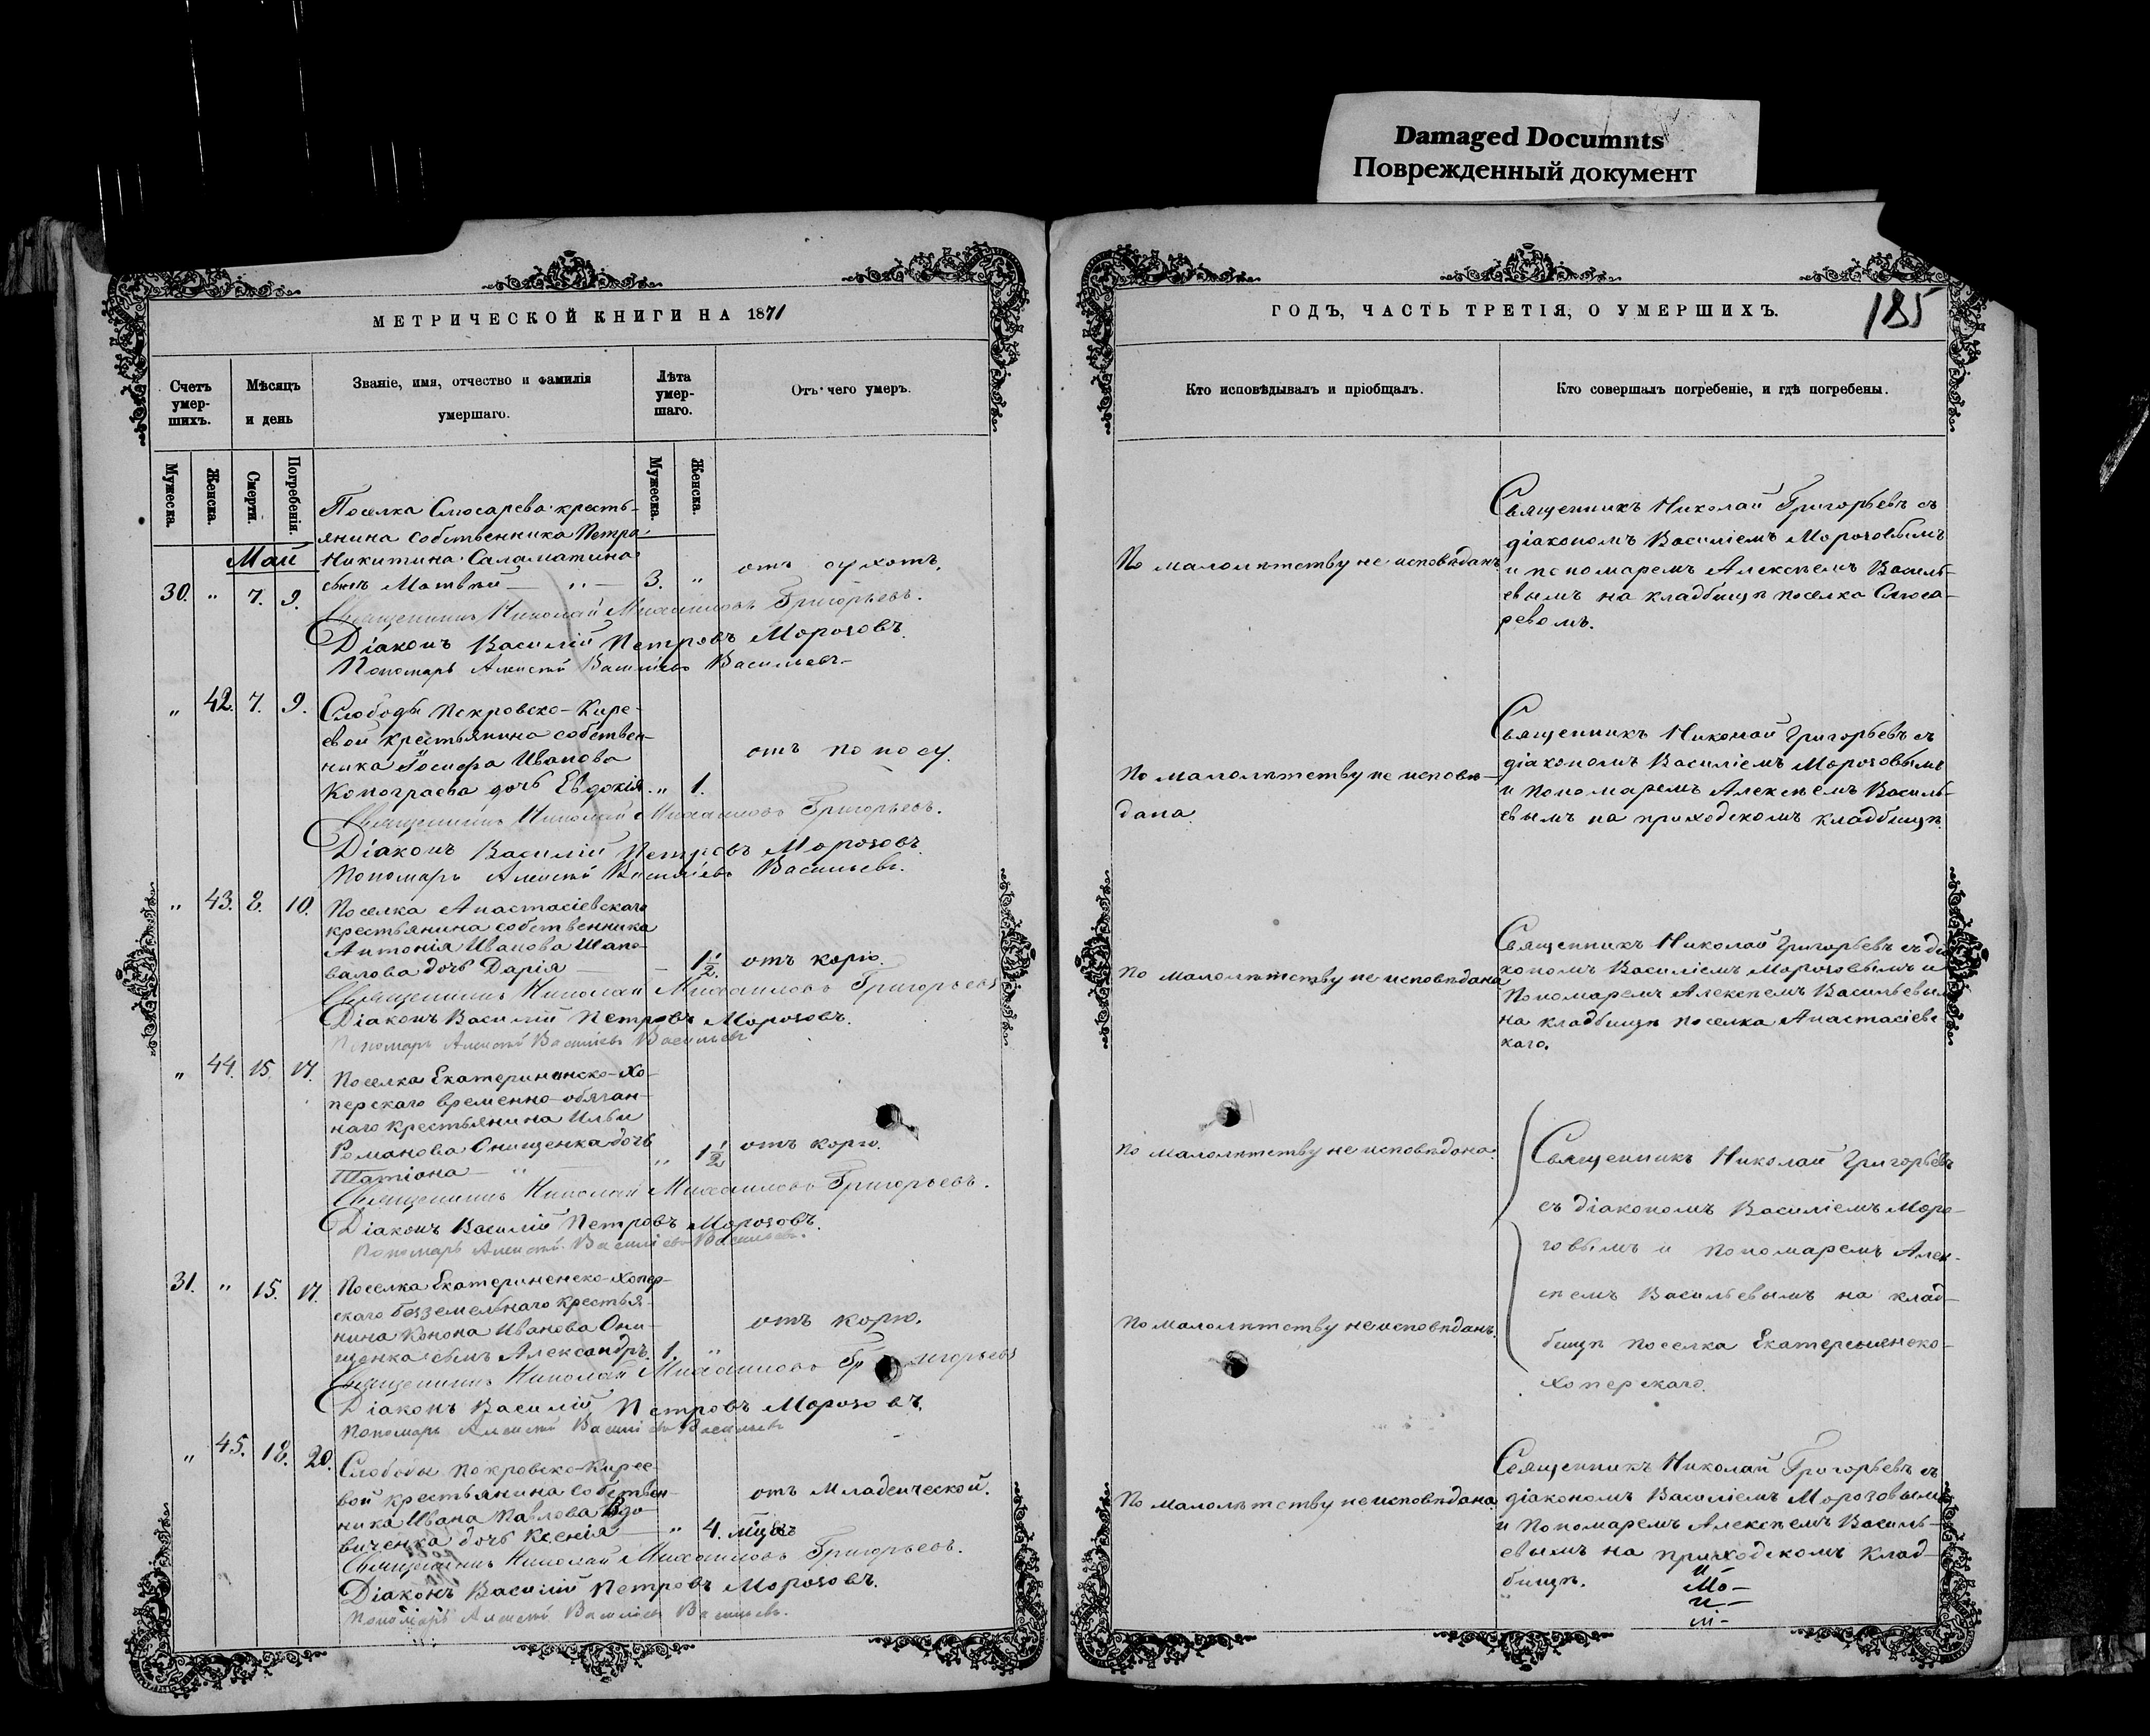 Damaged Documnts
Поврежденный документ
МЕТРИЧЕСКОЙ КНИГИ НА 1871
Счетъ умер-шихъ.
Мѣсяцъ и день
Званіе, имя, отчество и фамилія умершаго.
Лѣта умер-шаго.
Отъ чего умеръ.
Мужеска.
Женска.
Смерти.
Погребенія.
Мужеска.
Женска.
Май
Поселка Слюсарева кресть-
янина собственника Петра
Никитина Саламатина
30. " 7. 9. сынъ Матвѣй — " — 3. " отъ сухотъ.
Священникъ Николай Михаиловъ Григорьевъ.
Діаконъ Василій Петровъ Морозовъ.
Пономарь Алексѣй Василіевъ Васильевъ
" 42. 7. 9. Слободы Покровско-Кире-
евой крестьянина собствен-
ника Іосифа Иванова
отъ поносу.
Конограева дочь Евдокія. " 1.
Священникъ Николай Михаиловъ Григорьевъ.
Діаконъ Василій Петровъ Морозовъ.
Пономарь Алексѣй Василіевъ Васильевъ.
" 43. 8. 10. Поселка Анастасіевскаго
крестьянина собственника
Антонія Иванова Шапо-
валова дочь Дарія — 1½. отъ корю.
Священникъ Николай Михаиловъ Григорьевъ
Діаконъ Василій Петровъ Морозовъ.
Пономарь Алексѣй Василіевъ Васильевъ
" 44. 15. 17. Поселка Екатерининско-Хо-
перскаго временно-обязан-
наго крестьянина Ильи
Романова Онищенка дочь
Татіана — " " 1½ отъ корю.
Священникъ Николай Михаиловъ Григорьевъ.
Діаконъ Василій Петровъ Морозовъ.
Пономарь Алексѣй Василіевъ Васильевъ.
31. " 15. 17. Поселка Екатериненско-Хопер-
скаго безземельнаго крестья-
нина Конона Иванова Они-
отъ корю.
щенка сынъ Александръ. 1. "
Священникъ Николай Михаиловъ Григорьевъ
Діаконъ Василій Петровъ Морозовъ.
Пономарь Алексѣй Василіевъ Васильевъ
" 45. 18. 20. Слободы Покровско-Кирее-
вой крестьянина собствен-
отъ Младенческой.
ника Ивана Павлова Вдо-
виченка дочь Ксенія — " 4. мцвъ
Священникъ Николай Михаиловъ Григорьевъ.
Діаконъ Василій Петровъ Морозовъ.
Пономарь Алексѣй Василіевъ Васильевъ.
ГОДЪ, ЧАСТЬ ТРЕТІЯ, О УМЕРШИХЪ.
185
Кто исповѣдывалъ и пріобщалъ.
Кто совершалъ погребеніе, и гдѣ погребены.
По малолѣтству не исповѣданъ.
Священникъ Николай Григорьевъ съ
діакономъ Василіемъ Морозовымъ
и пономаремъ Алексѣемъ Василь-
евымъ на кладбищѣ поселка Слюса-
ревомъ.
По малолѣтству не исповѣ-
дана.
Священникъ Николай Григорьевъ съ
діакономъ Василіемъ Морозовымъ
и пономаремъ Алексѣемъ Василь-
евымъ на приходскомъ кладбищѣ.
По малолѣтству не исповѣдана
Священникъ Николай Григорьевъ съ діа
кономъ Василіемъ Морозовымъ и
Пономаремъ Алексѣемъ Васильевым
на кладбищѣ поселка Анастасіевс
каго.
По малолѣтству не исповѣдана.
По малолѣтству неисповѣданъ.
Священникъ Николай Григорьевъ
съ діакономъ Василіемъ Моро-
зовымъ и пономаремъ Алек-
сѣемъ Васильевымъ на клад-
бищѣ поселка Екатерененско-
Хоперскаго.
По малолѣтству неисповѣдана.
Священникъ Николай Григорьевъ съ
діакономъ Василіемъ Морозовымъ
и Пономаремъ Алексѣемъ Василь-
евымъ на приходскомъ клад-
бищѣ.